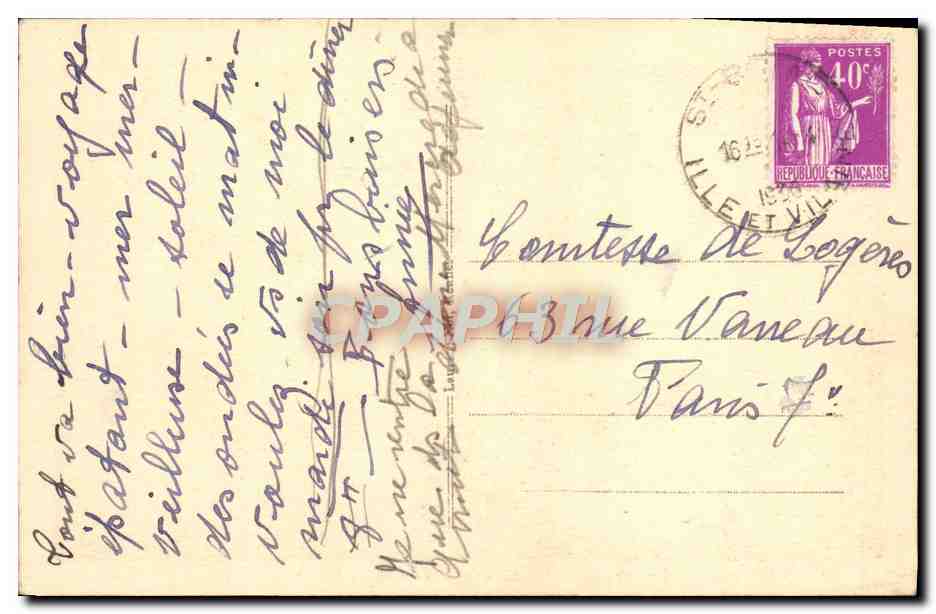 Tout va bien - voyage
épatant - mer mer-
veilleuse - soleil -
des ondées ce matin -
voulez vs de moi
mardi soir pr le dîner
8H - Bons baisers
Je ne rentre
que ds la
POSTES
40c
REPUBLIQUE FRANÇAISE
ST
16
ILLE ET VILAINE
Comtesse de Logères
63 rue Vaneau
Paris 7e
CPAPHIL